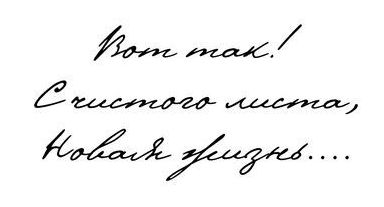 Вот так!
С чистого листа,
Новая жизнь....